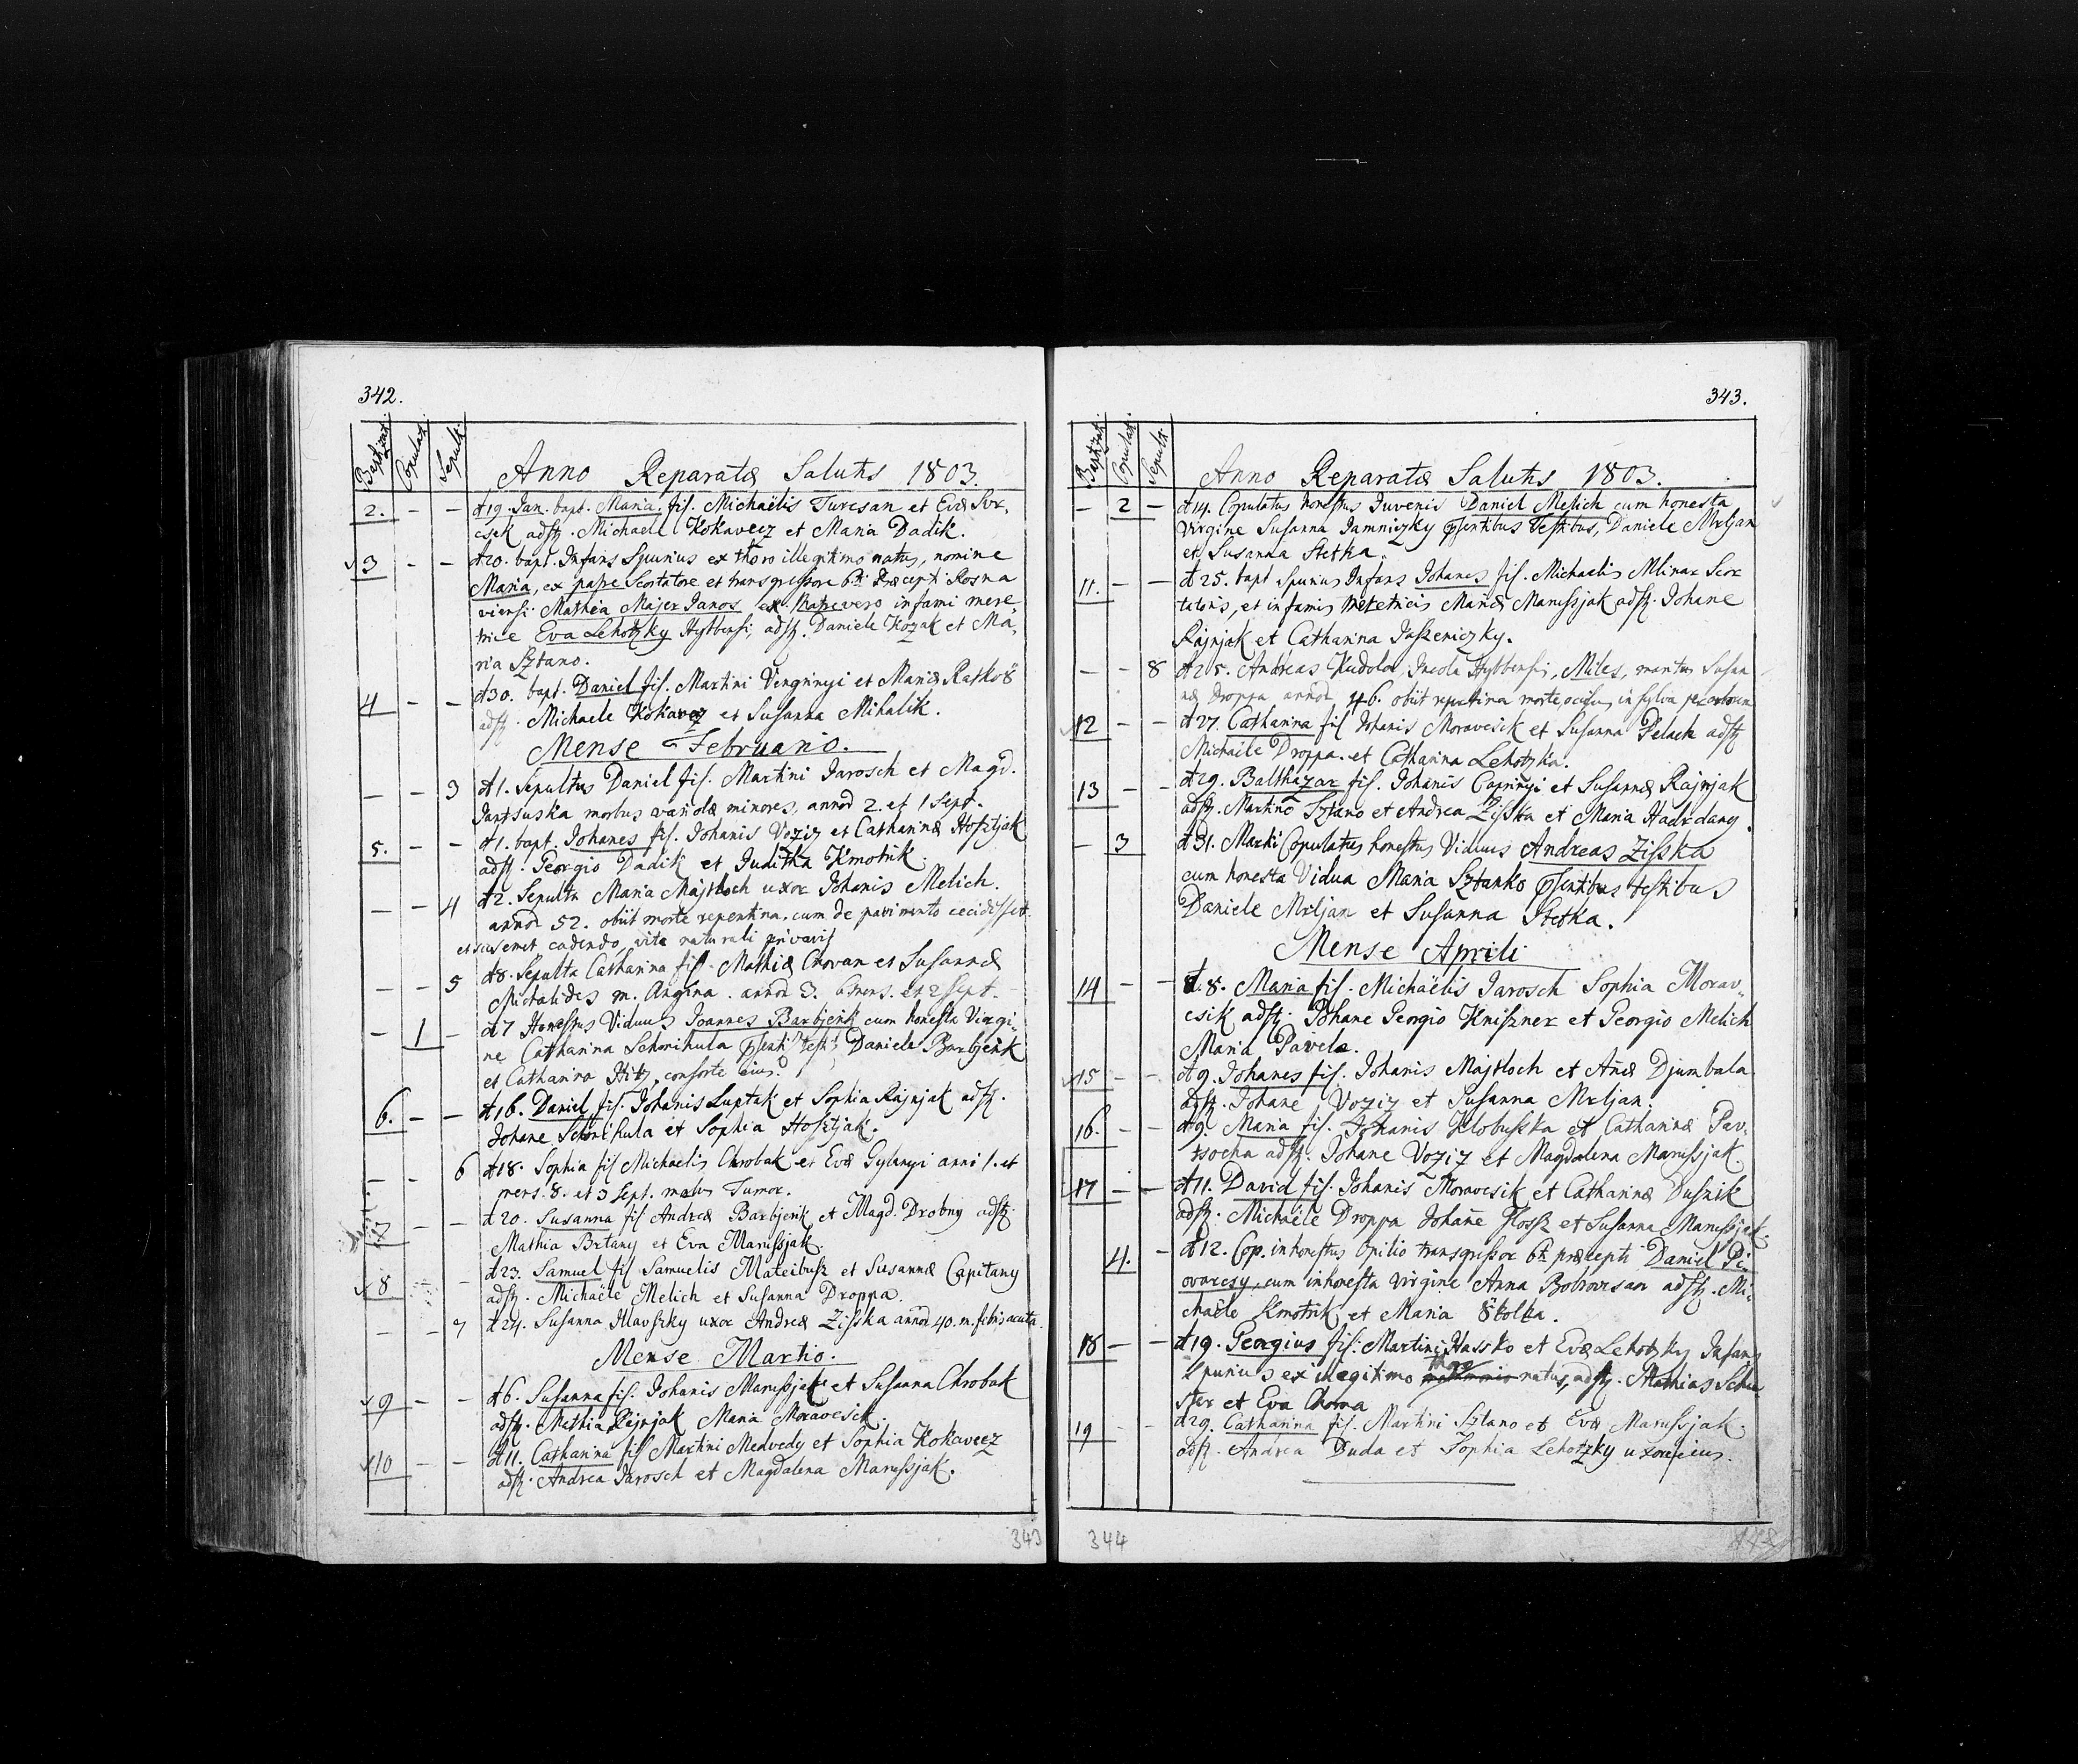 342.
Baptizat. Copulat. Sepult.
Anno Reparatæ Salutis 1803.
2. - - d 19. Jan. bapt. Maria fil. Michaëlis Turcsan et Evæ Svr¸
csek adst. Michaele Kokavecz et Maria Dadik.
3 - - d 20. bapt. Infans Spurius ex thoro illegitimo natus, nomine
Maria, ex patre Scortatore et transgressore 6ti Præcepti Rosna
viensi Mathia Majer Janos ex matre vero infami mere¸
trice Eva Lehotzky Hybbensi, adst. Daniele Kozak et Ma¸
ria Sztano.
4 - - d 30. bapt. Daniel fil. Martini Vengrinyi et Mariæ Ratko
adst. Michaele Kokavecz et Susanna Mihalik.
Mense Februario.
- - 3 d 1. Sepultus Daniel fil. Martini Jarosch et Magd.
Jantsuska morbus variolæ minores, annor 2. et 1 Sept.
5. - - d 1. bapt. Johanes fil. Johanis Voziz et Catharinæ Hosztjak
adst. Georgio Dadik et Juditha Kmotrik.
- - 4 d 2. Sepulta Maria Majstloch uxor Johanis Melich.
annor 52. obiit morte repentina, cum de pavimento cecidisset
et susemet cadendo vita naturali privavit
- - 5 d 8. Sepulta Catharina fil. Mathiæ Chovan et Susannæ
Michalides m. Angina. annor 3. 6 mens. et 2 sept.
- 1 - d 7 Honestus Viduus Joannes Barbjerik cum honesta Virgi¸
ne Catharina Schorihula psenti test. Daniele Barbjerik
et Catharina Hitz, consorte ejus.
6. - - d 16. Daniel fil. Johanis Luptak et Sophia Rajnjak adst.
Johane Schorihula et Sophia Hosztjak.
- - 6 d 18. Sophia fil Michaelis Chrobak et Evæ Gylanyi anni 1. et
mens. 8. et 3 Sept. mortus Tumor.
7 - - d 20. Susanna fil Andreæ Barbjerik et Magd. Drobny adst.
Mathia Brtany et Eva Marussjak.
8 - d 23. Samuel fil Samuelis Mateibusz et Susannæ Capitany
adst. Michaële Melich et Susanna Droppa.
- - 7 d 24. Susanna Hlavszky uxor Andreæ Zisska annor 40. m. febris acuta.
Mense Martio.
9 - - d 6. Susanna fil. Johanis Marussjak et Susanna Chrobak
adst. Mathia Rajnjak Maria Moravcsik.
10 - - d 11. Catharina fil Martini Medvedy et Sophia Kokavecz
adst. Andrea Jarosch et Magdalena Marussjak.
343
343.
Baptizat. Copulat. Sepult.
Anno Reparatæ Salutis 1803.
- 2 - d 14. Copulatus honestus Juvenis Daniel Melich cum honesta
Virgine Susanna Jamniczky psentibus testibus, Daniele Mrljan
et Susanna Stetka.
11. - - d 25. bapt Spurius Infans Johanes fil. Michaelis Mlinar Scor
tatoris, et infamis Meretricis Mariæ Marussjak adst. Johane
Rajnjak et Catharina Jaszeniczky.
- - 8 d 25. Andreas Kudolov Incola Hybbensis, Miles, maritus Susan
næ Droppa annor 46. obiit repentina morte occisus in sylva per arborem
12 - - d 27. Catharina fil Johanis Moravcsik et Susanna Pelach adst
Michaële Droppa et Catharina Lehotzka.
13 - - d 29. Balthazar fil. Johanis Caprinyi et Susannæ Rajnjak
adst. Martino Sztano et Andrea Zisska et Maria Hadrdany.
- 3 d 31. Martii Copulatus honestus Viduus Andreas Zisska
cum honesta Vidua Maria Sztanko psentibus testibus
Daniele Mrljan et Susanna Stetka.
Mense Aprili
14 - - d. 8. Maria fil. Michaëlis Jarosch Sophia Morav¸
csik adst. Johane Georgio Kniszner et Georgio Melich
Maria Pavela.
15 - - d 9. Johanes fil. Johanis Majstloch et Añæ Djumbala
adst. Johane Voziz et Susanna Mrljan.
16. - - d 9. Maria fil. Johanis Klobusska et Catharinæ Pav¸
tsocha adst. Johane Voziz et Magdalena Marussjak
17 - - d 11. David fil. Johanis Moravcsik et Catharinæ Dusznik
adst. Michaële Droppa Johañe Flossz et Susanna Marussjak.
4. - d 12. Cop. inhonestus Opilio transgressor 6ti præcepti Daniel Pi¸
ovarcsy, cum inhonesta virgine Anna Bobrovcsan adst. Mi¸
chaële Kmotrik et Maria Stolka.
18 - - d 19. Georgius fil. Martini Hassko et Evæ Lehotzky Infans
spurius ex illegitimo thoro natus, adst. Mathias Schu
ster et Eva Chorna
19 - - d 29. Catharina fil. Martini Sztano et Evæ Marussjak.
adst. Andrea Duda et Sophia Lehotzky uxore ejus.
344